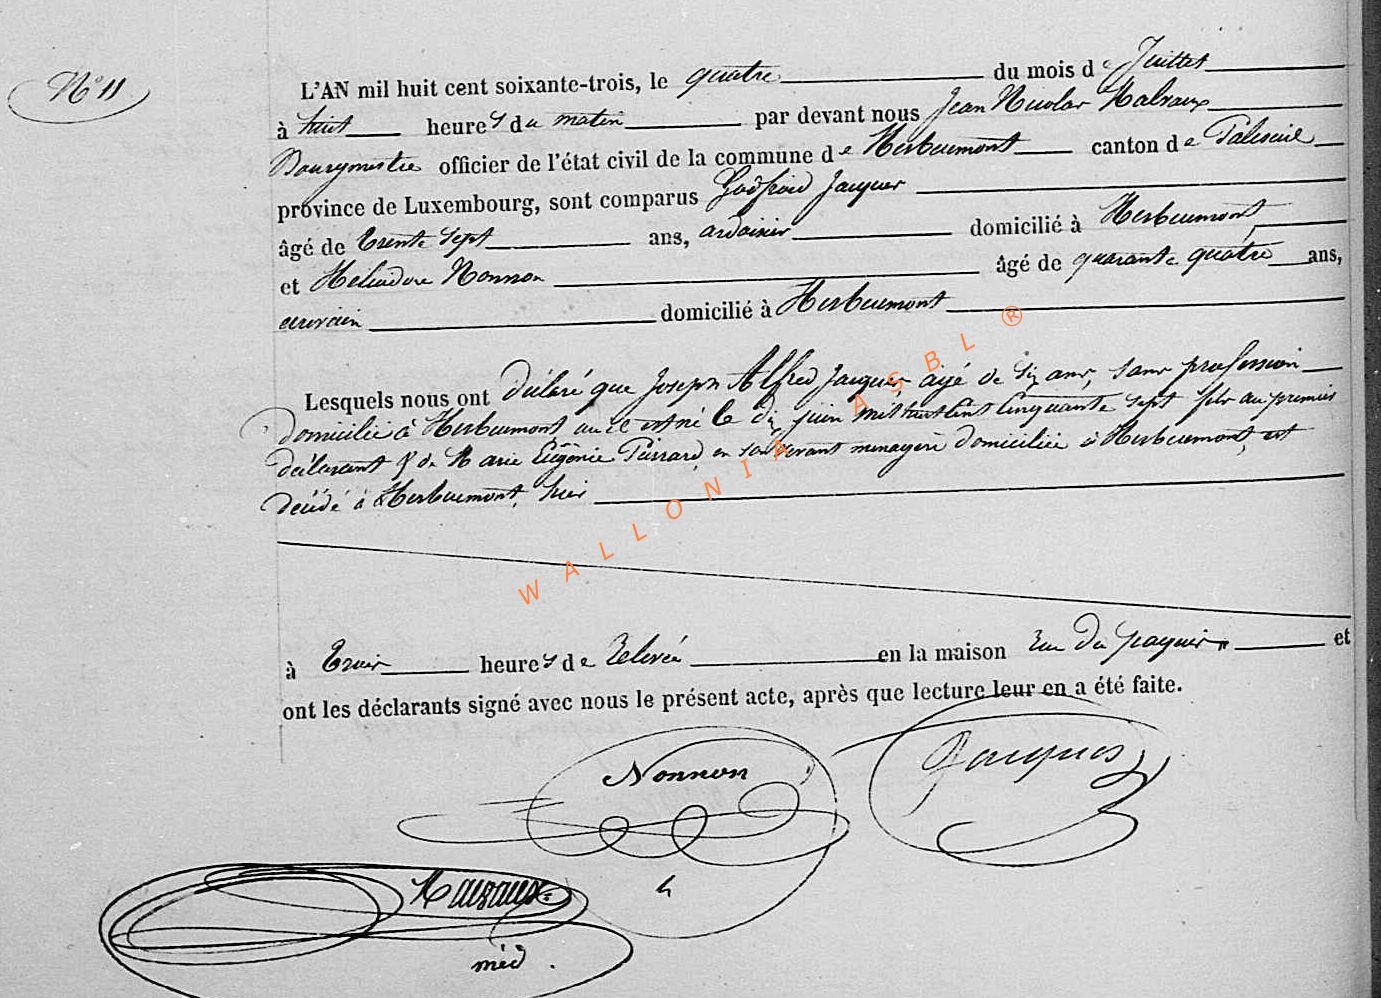 N° 11
L'AN mil huit cent soixante-trois, le quatre du mois de Juillet
à huit heures du matin par devant nous Jean Nicolas Malvaux
Bourgmestre officier de l'état civil de la commune de Herbeumont canton de Paliseul
province de Luxembourg, sont comparus Godfroid Jacques
âgé de trente sept ans, ardoisier domicilié à Herbeumont
et Heliodore Nonnon âgé de quarante quatre ans,
ecrivain domicilié à Herbeumont
Lesquels nous ont déclaré que Joseph Alfred Jacques agé de six ans, sans profession
domicilié à Herbeumont où il est né le dix juin mil huit cent cinquante sept fils du premier
déclarant & de Marie Eugénie Pierrard en son vivant menagère domiciliée à Herbeumont, est
décédé à Herbeumont, hier
à trois heures de relevée en la maison rue du paquis et
ont les déclarants signé avec nous le présent acte, après que lecture leur en a été faite.
Nonnon
Jacques
h
Malvaux
méd.
WALLONIA ASBL ®